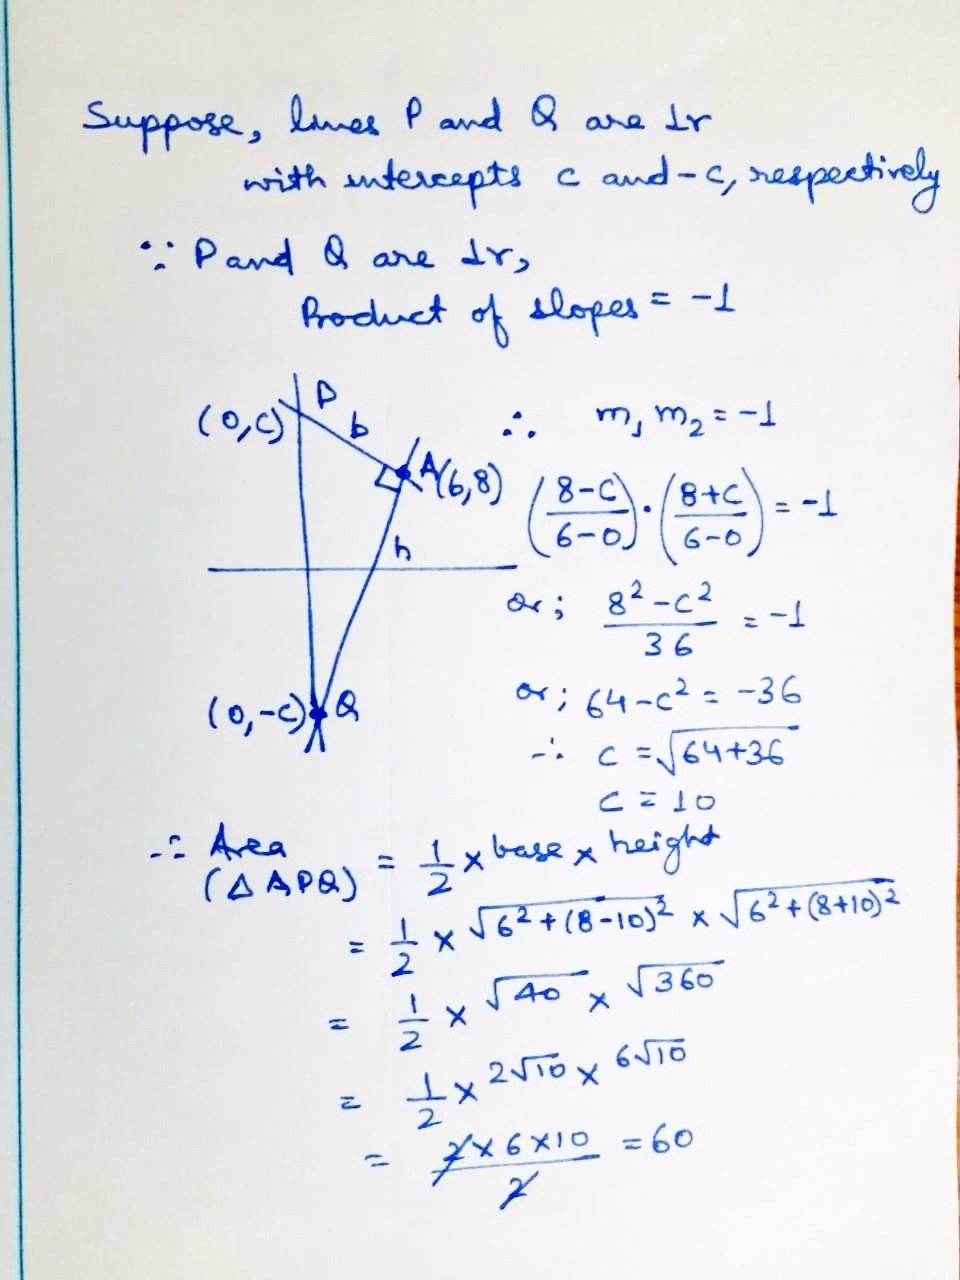 Suppose, lines P and Q are ⊥r
with intercepts c and -c, respectively
∵ P and Q are ⊥r,
Product of slopes = -1
P
(0,c)
b
A(6,8)
h
(0,-c) Q
∴ m₁ m₂ = -1
((8-c)/(6-0)) · ((8+c)/(6-0)) = -1
or; (8² - c²)/36 = -1
or; 64 - c² = -36
∴ c = √(64+36)
c = 10
∴ Area (△APQ) = 1/2 × base × height
= 1/2 × √(6² + (8-10)²) × √(6² + (8+10)²)
= 1/2 × √40 × √360
= 1/2 × 2√10 × 6√10
= (2 × 6 × 10)/2 = 60